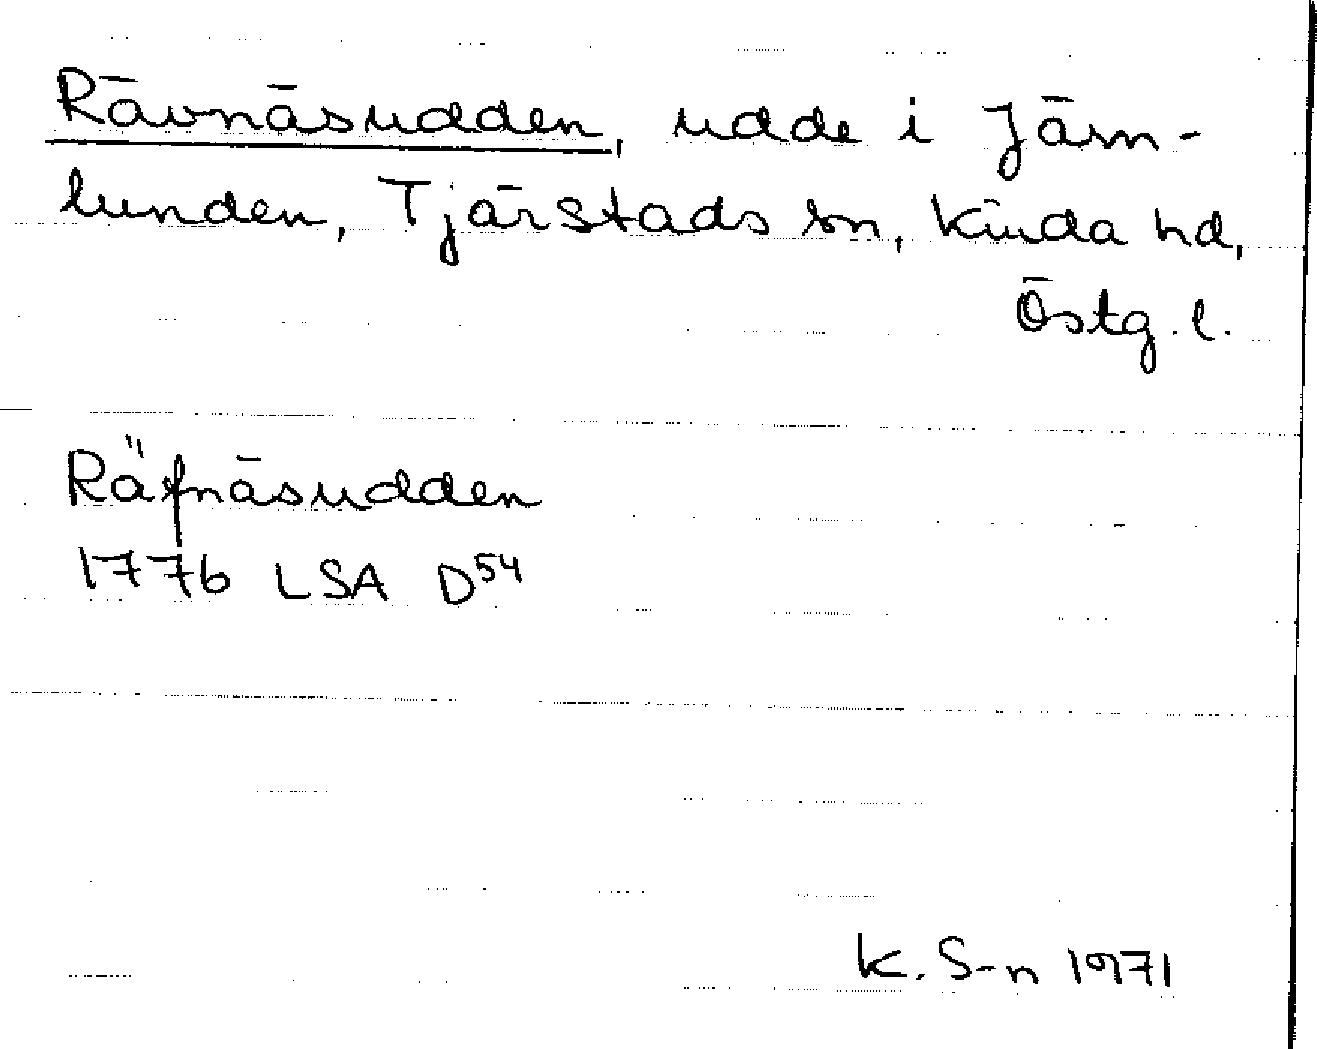 Rävnäsudden, udde i Järn-
lunden, Tjärstads sn, Kinda hd,
Östg. l.
Räfnäsudden
1776 LSA D54
K. S-n 1971